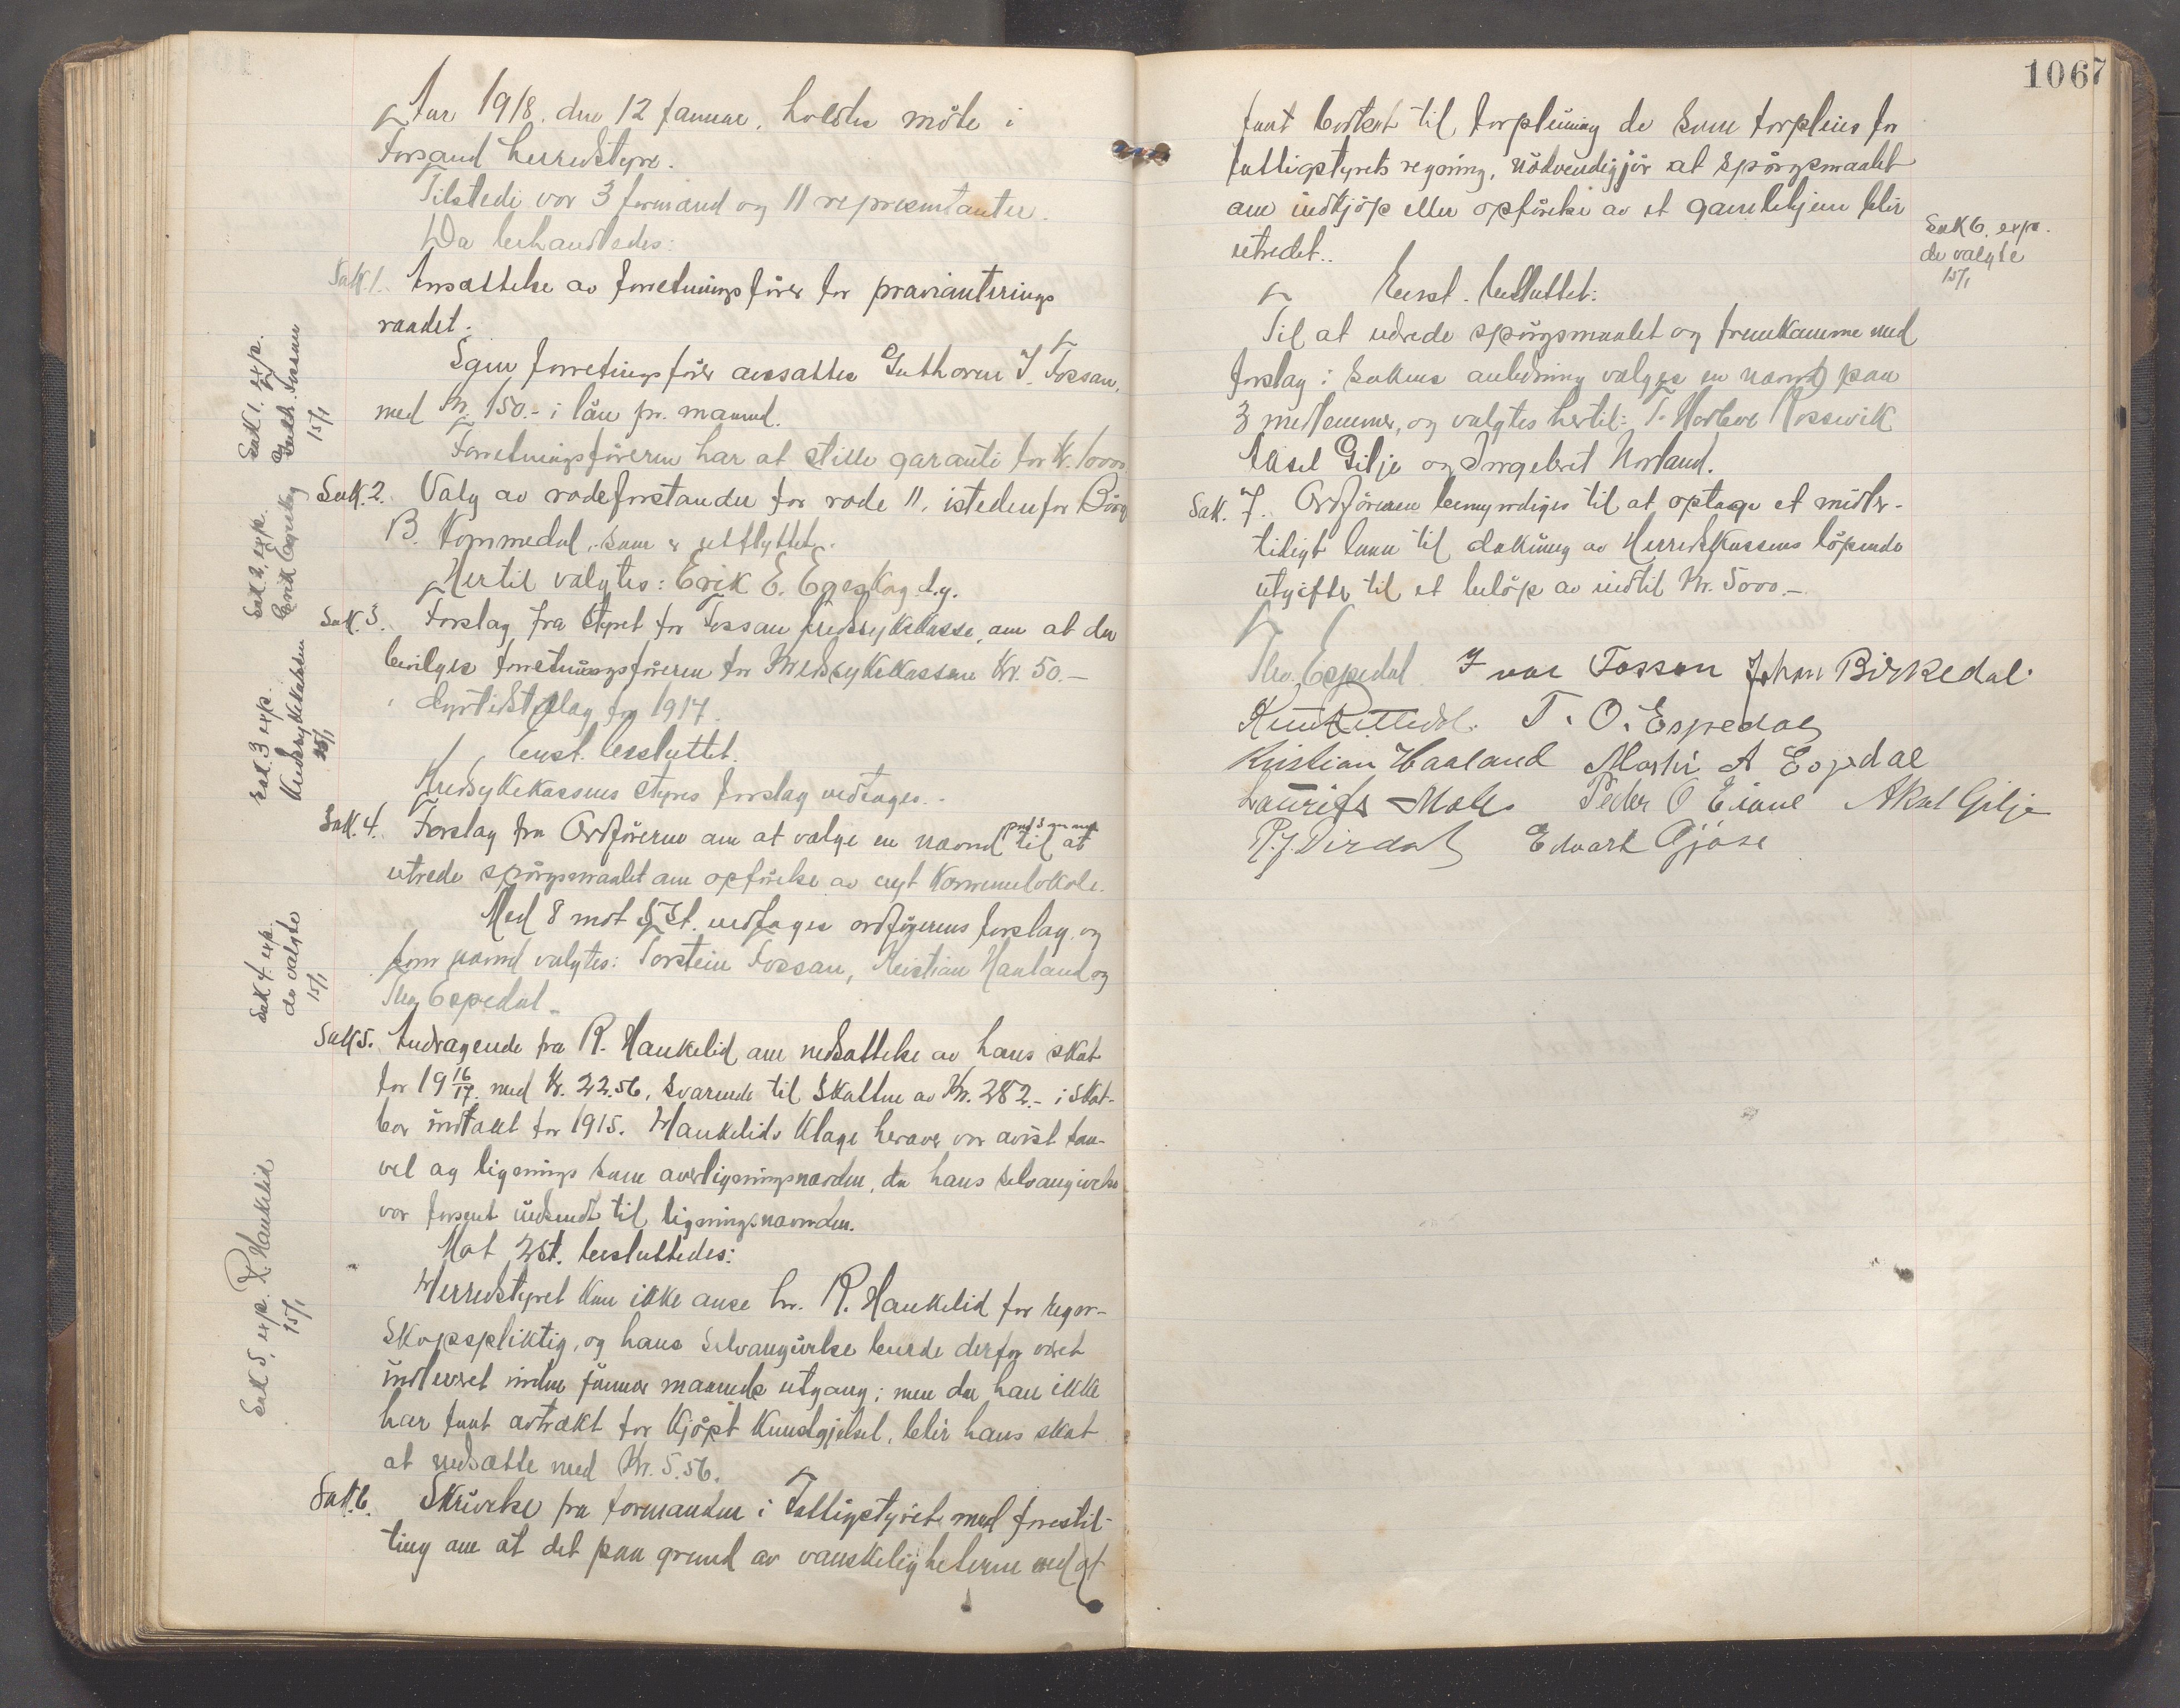 Aar 1918. den 12 januar. holdtes møte i
Forsand herredstyre.
Tilstede var 3 formænd og 11 repræsentanter.
Da behandledes:
Sak. 1. Ansættelse av forretningsfører for provianterings
raadet.
Som forretningsfører ansattes Guthorm I. Fossan,
med Kr. 150.- i løn pr. maaned.
Forretningsføreren har at stille garanti for Kr. 10000
Sak 1. exp.
Guth. Fossan
15/1
Sak. 2. Valg av rodeforstander for rode 11. istedenfor Børg
B. Kommedal, som er utflyttet.
Hertil valgtes: Erik E. Egeskog d.y.
Sak 2, exp.
Erik Egeskog
Sak. 3. Forslag fra Styret for Fossan Kredssykekasse, om at der
bevilges forretningsføreren for Kredssykekassen Kr. 50.-
i dyrtidstillæg for 1917.
Enst. besluttet.
Kredsykekassens styres forslag vedtages.
Sak. 3 exp.
Kredssykekassen
15/1
Sak. 4. Forslag fra Ordføreren om at vælge en nævnd til at
utrede spørgsmaalet om opførelse av nyt Kommunelokale.
Med 8 mot 5 St. vedtages ordførerens forslag og
som nævnd valgtes: Torstein Fossan, Kristian Haaland og
Thv. Espedal.
Sak 4. exp.
de valgte
15/1
Sak 5. Andragende fra R. Haukelid om nedsættelse av hans skat
for 19 16/17. med Kr. 22.56, svarende til Skatten av Kr. 282.- i skat-
bar indtækt for 1915. Haukelids Klage herover var avvist saa-
vel av lignings som overligningsnævnden, da hans selvangivelse
var forsent indsendt til ligningsnævnden.
Mot 2 St. besluttedes:
Herredstyret kan ikke anse hr. R. Haukelid for regn-
skapspliktig, og hans Selvangivelse burde derfor været
indleveret inden januar maaneds utgang; men da han ikke
har faat avtrækt for Kjøpt Kunstgjødsel, blir hans skat
at nedsætte med Kr. 5.56.
Sak 5, exp. R. Haukelid
15/1
Sak. 6. Skrivelse fra formanden i Fattigstyret med forestil-
ling om at det paa grund av vanskeligheterne ved at
1067
faat bortsat til forpleining de som forpleies for
fattigstyrets regning, nødvendiggjør at spørgsmaalet
om indkjøp eller opførelse av et gamlehjem blir
utredet.
Enst. besluttet:
Til at utrede spørgsmaalet og fremkomme med
forslag i sakens anledning vælges en nævnd paa
3 medlemmer, og valgtes hertil: T. Rossevik
Aksel Gilje og Ingebret Norland.
Sak 6. exp.
de valgte
15/1
Sak. 7. Ordføreren bemyndiges til at optage et midler-
tidigt laan til dækning av Herredskassens løpende
utgifter til et beløp av indtil Kr. 5000.-
Thv. Espedal Ivar Fossan John Birkedal
T. O. Espedal
Kristian Haaland Martin A Espedal
Laurits Peder O Eiane Aksel Gilje
R. J. Dirdal Edvart Gjøse